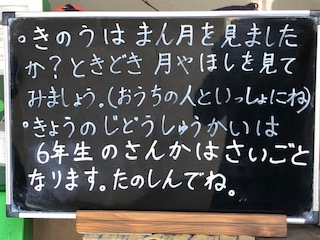 。きのうはまん月を見ました
か？ときどき 月やほしを見て
みましょう。(おうちの人といっしょにね)
。きょうのじどうしゅうかいは
6年生のさんかはさいごと
なります。たのしんでね。